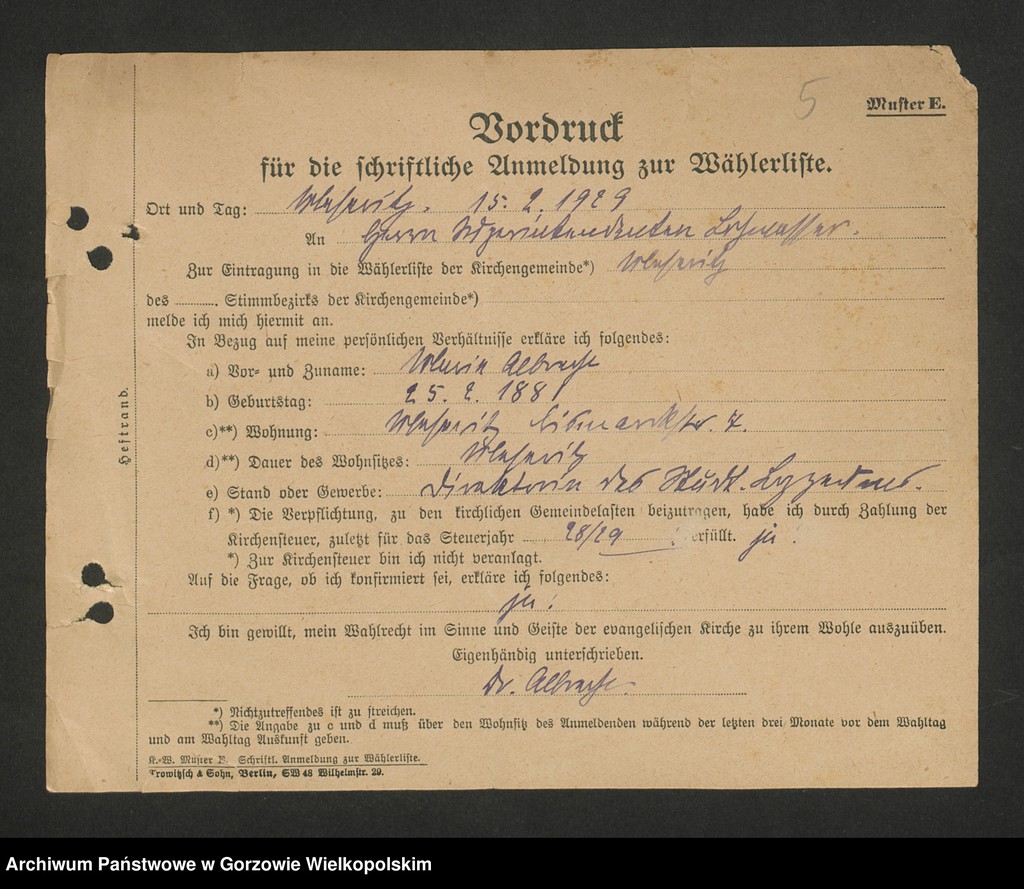 5
Muster E.
Vordruck
für die schriftliche Anmeldung zur Wählerliste.
Ort und Tag: Meseritz. 15. 2. 1929
An Herrn Superintendenten Lohwasser.
Zur Eintragung in die Wählerliste der Kirchengemeinde*) Meseritz
des ........ Stimmbezirks der Kirchengemeinde*)
melde ich mich hiermit an.
In Bezug auf meine persönlichen Verhältnisse erkläre ich folgendes:
a) Vor= und Zuname: Maria Albrecht
b) Geburtstag: 25. 2. 1881
c)**) Wohnung: Meseritz Bismarckstr. 7.
d)**) Dauer des Wohnsitzes: Meseritz
e) Stand oder Gewerbe: Direktorin des Städt. Lyzeums.
f) *) Die Verpflichtung, zu den kirchlichen Gemeindelasten beizutragen, habe ich durch Zahlung der
Kirchensteuer, zuletzt für das Steuerjahr 28/29 erfüllt. ja!
*) Zur Kirchensteuer bin ich nicht veranlagt.
Auf die Frage, ob ich konfirmiert sei, erkläre ich folgendes:
ja!
Ich bin gewillt, mein Wahlrecht im Sinne und Geiste der evangelischen Kirche zu ihrem Wohle auszuüben.
Eigenhändig unterschrieben.
Dr. Albrecht.
*) Nichtzutreffendes ist zu streichen.
**) Die Angabe zu c und d muß über den Wohnsitz des Anmeldenden während der letzten drei Monate vor dem Wahltag
und am Wahltag Auskunft geben.
K.-W. Muster E. Schriftl. Anmeldung zur Wählerliste.
Trowitzsch & Sohn, Berlin, SW 48 Wilhelmstr. 29.
Heftrand.
Archiwum Państwowe w Gorzowie Wielkopolskim